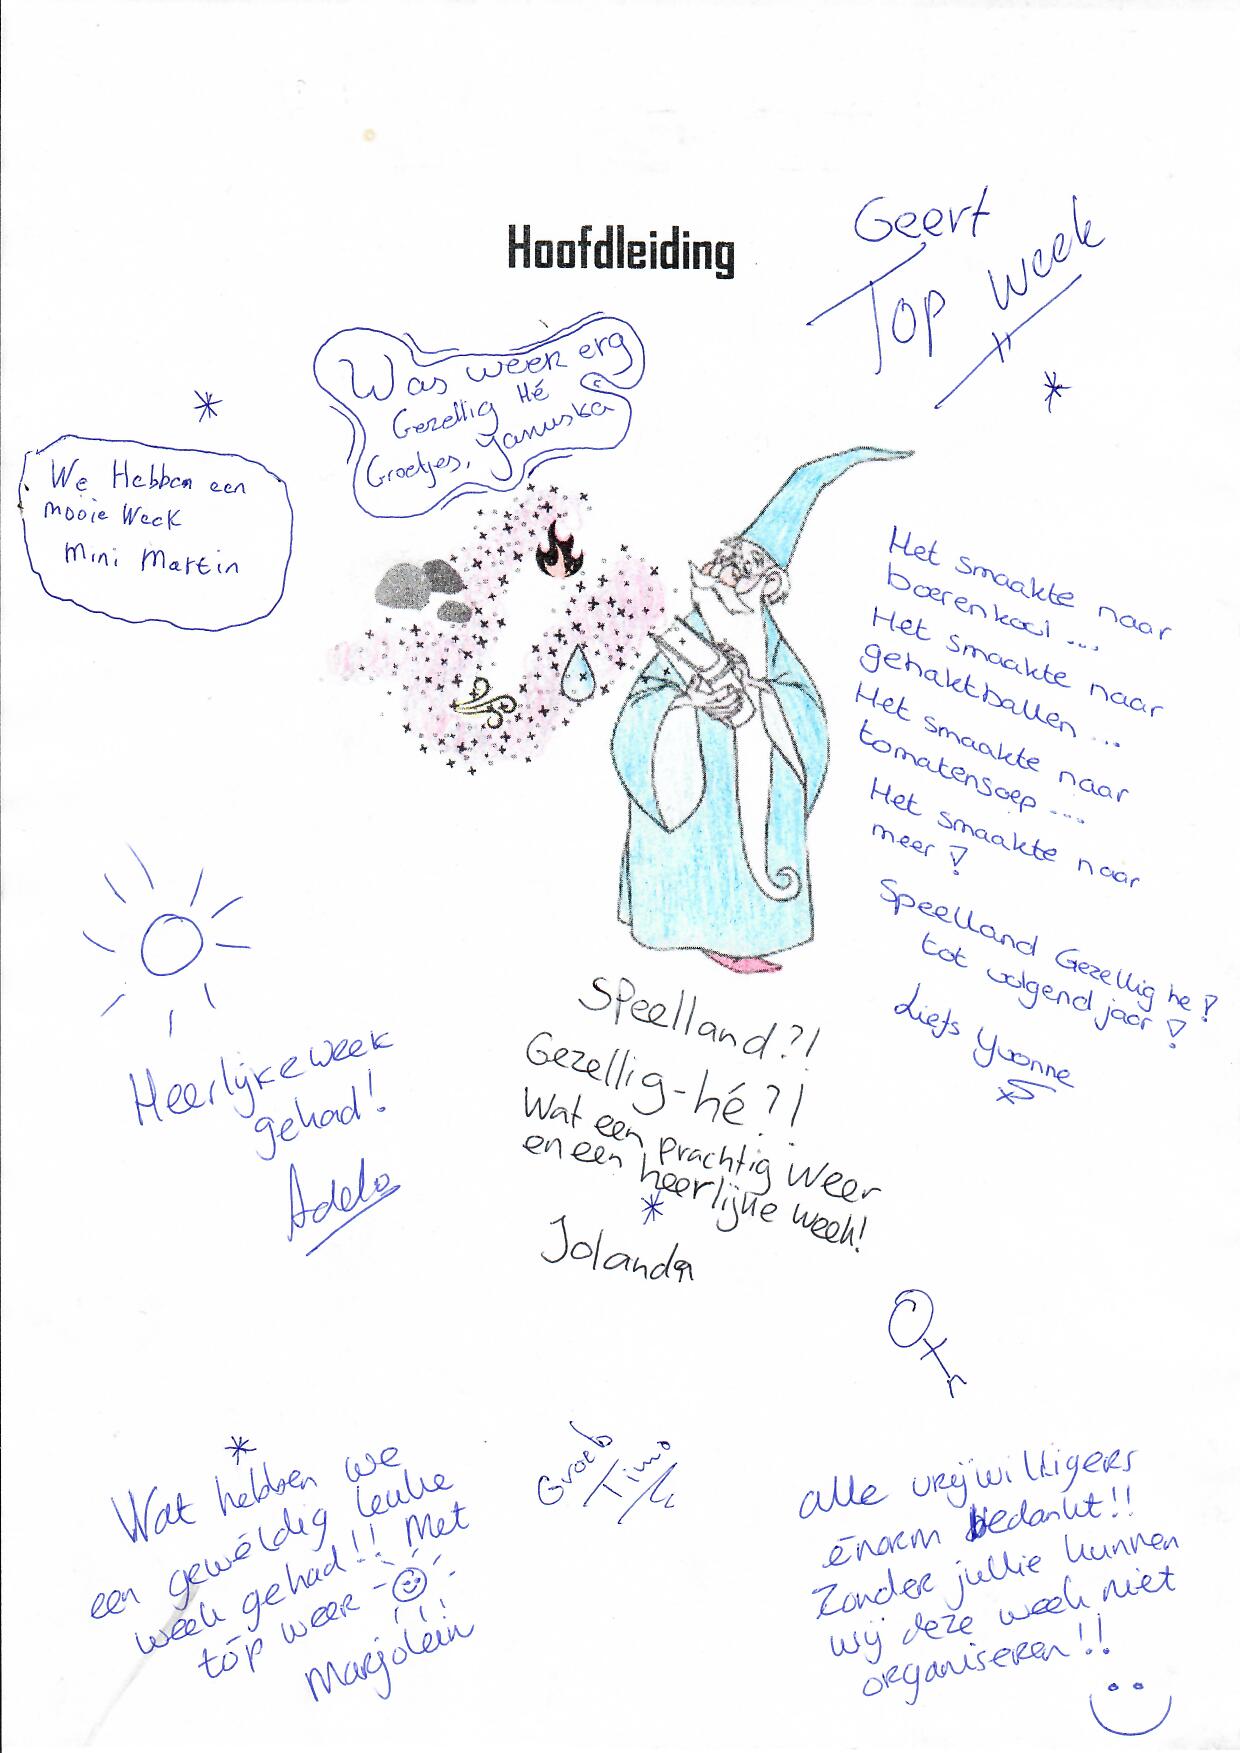 Hoofdleiding
Geert
Top week
Was week erg
Gezellig Hé
Groetjes, Januska
We Hebben een
mooie Week
Mini Martin
Het smaakte naar
boerenkool ...
Het smaakte naar
gehaktballen ...
Het smaakte naar
tomatensoep ...
Het smaakte naar
meer!
Speelland Gezellig he!
tot volgend jaar!
Liefs Yvonne
Heerlijke week
gehad!
Adela
Speelland?!
Gezellig-hé?!
Wat een prachtig weer
en een heerlijke week!
Jolanda
Wat hebben we
een gewéldig leuke
week gehad!! Met
tóp weer
Marjolein
Timo
alle vrijwilligers
énorm bedankt!!
Zonder jullie kunnen
wij deze week niet
organiseren!!